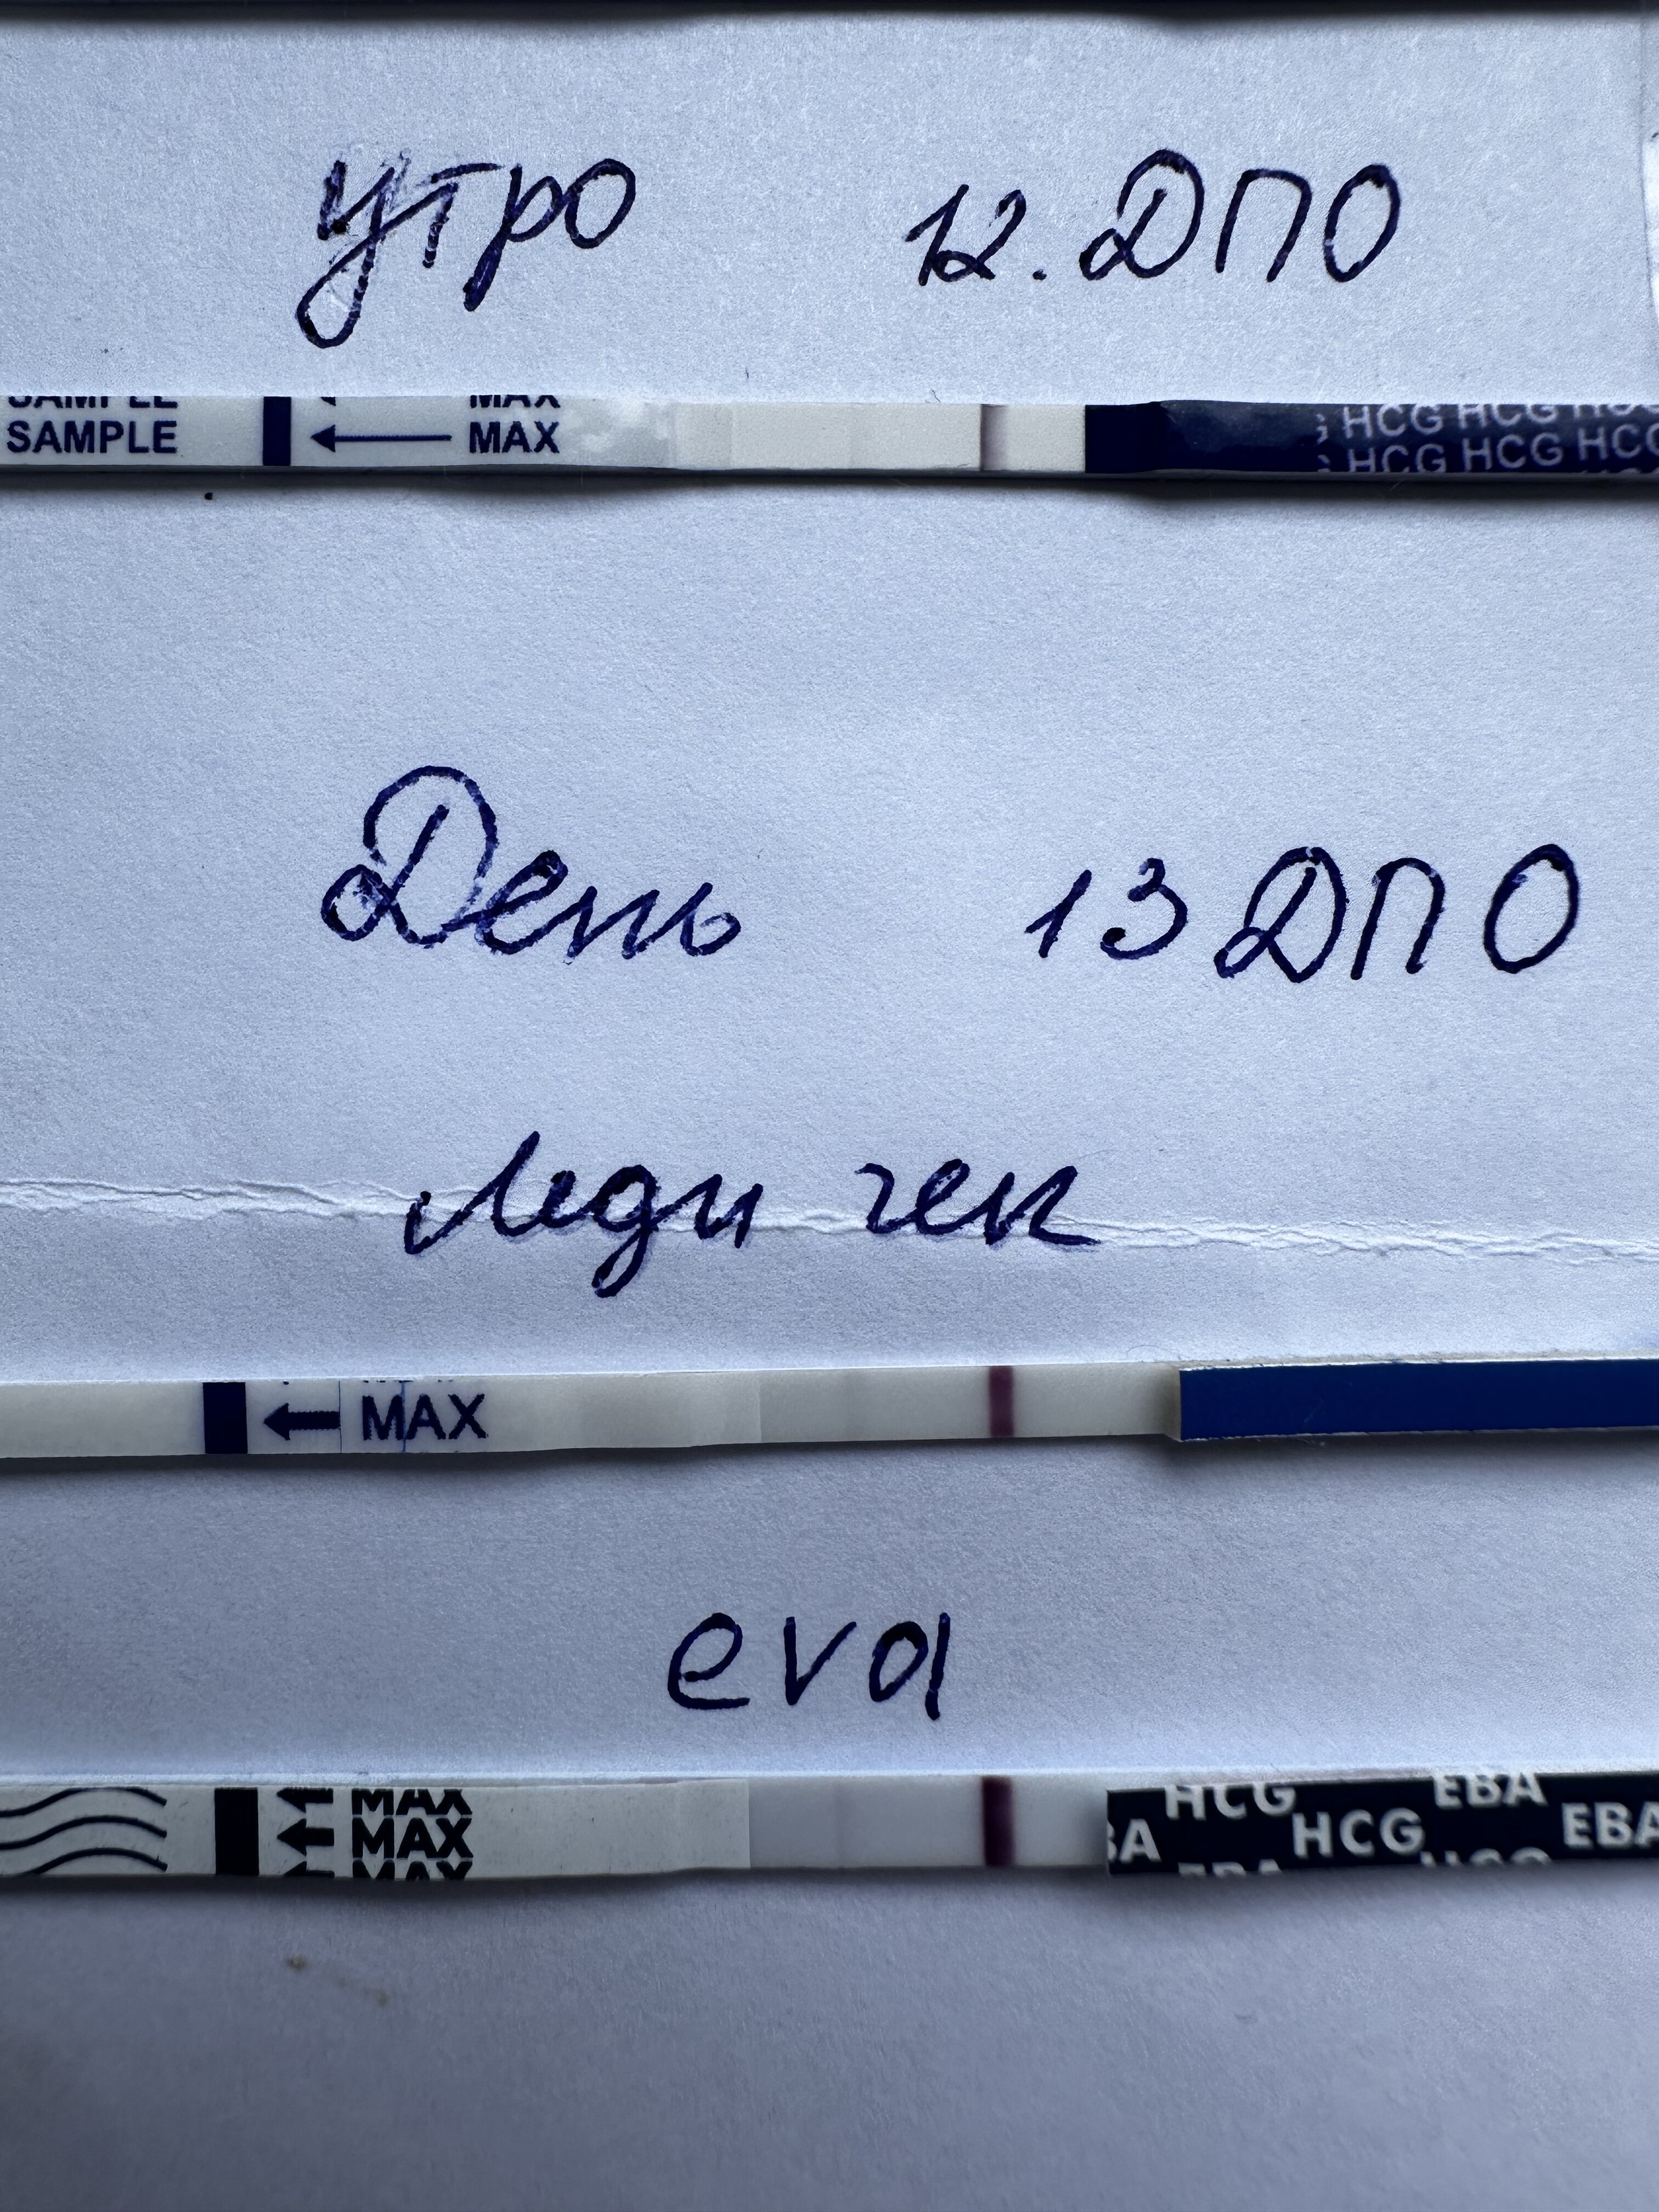 утро 12.ДПО
SAMPLE MAX
SAMPLE MAX HCG HCG
HCG HCG HCG
День 13 ДПО
Леди чек
MAX
eva
MAX HCG EBA
MAX HCG EBA
MAX